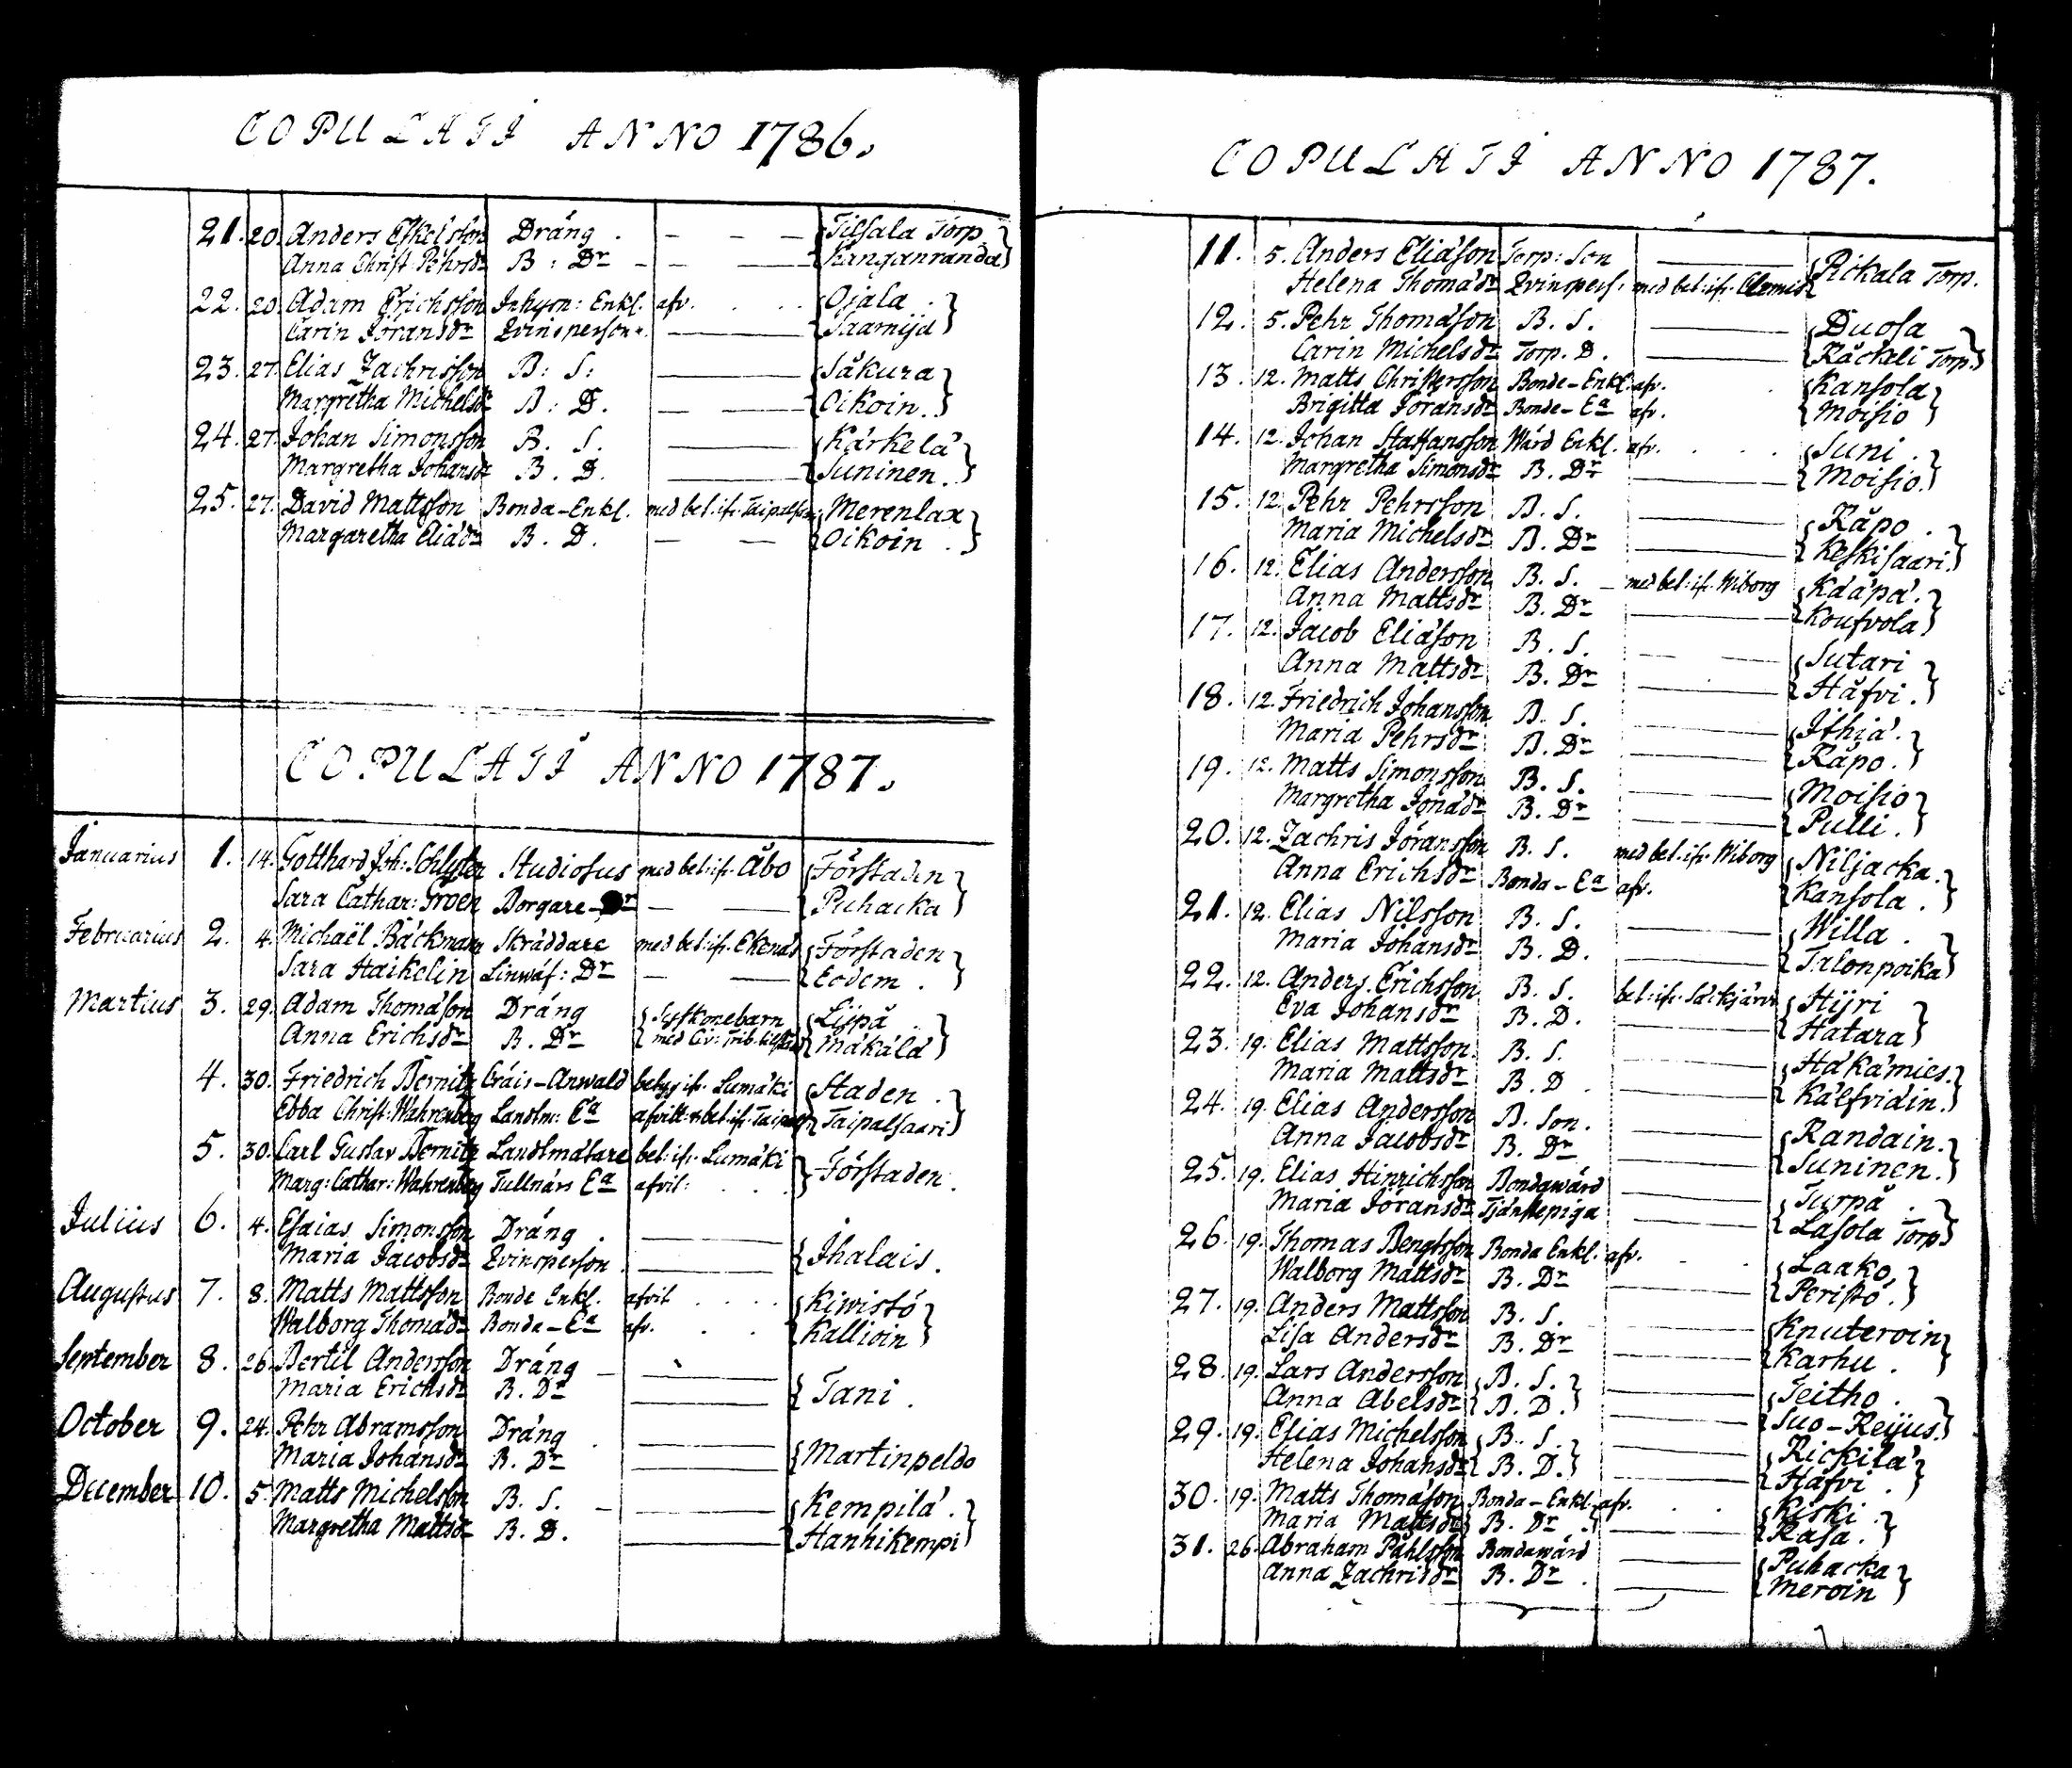 COPULATI ANNO 1786.
21. 20. Anders Eskelsson Dräng . — — — Tilsala Torp
Anna Christ: Pehrsdr B: Dr — — — Kanganranda
22. 20. Adam Erichsson Inhysn: Enkl. afv. . . . Ojala .
Carin Jöransdr Qvinsperson. — Saarnijä
23. 27. Elias Zachrisson B: S: — Såkura
Margretha Michelsdr B: D. — — Oikoin.
24. 27. Johan Simonsson B. S. — Kärkelä
Margretha Johansdr B. D. — Suninen.
25. 27. David Mattsson Bonda-Enkl. med bel: ifr. Taipalsaari Merenlax
Margaretha Eliædr B. D. — — Oikoin .
COPULATI ANNO 1787.
Januarius 1. 14. Gotthard Joh: Schlyter Studiosus med bel: ifr. Åbo Förstaden
Sara Cathar: Groen Borgare-Dr — — Puhacka
Februarius 2. 4. Michaël Bäckmann Skräddare med bel: ifr. Ekenäs Förstaden
Sara Haikelin Linwäf: Dr — — Eodem .
Martius 3. 29. Adam Thomasson Dräng Syskonebarn Lijpä
Anna Erichsdr B. Dr med Civ: Trib: tilstånd Mäkälä
4. 30. Friedrich Bernitz Cräis-Anwald betyg ifr. Lumäki Staden .
Ebba Christ: Wahrenberg Landtm: Ea afvitt: & bel: ifr. Taipals: Taipalsaari
5. 30. Carl Gustav Bernitz Landtmätare bel: ifr. Lumäki Förstaden.
Marg: Cathar: Wahrenberg Tullnärs Ea afvit: . . .
Julius 6. 4. Esaias Simonsson Dräng . — Ihalais.
Maria Jacobsdr Qvinsperson . —
Augustus 7. 8. Matts Mattsson Bonde Enkl. afvit . . . . Kiwistö
Walborg Thomædr Bonda-Ea afv. . . Kallioin
September 8. 26. Bertil Andersson Dräng — — Tani .
Maria Erichsdr B. Dr —
October 9. 24. Pehr Abramsson Dräng . — Martinpeldo
Maria Johansdr B. Dr —
December 10. 5. Matts Michelsson B. S. — — Kempilä .
Margretha Mattsdr B. D. — Hanhikempi
COPULATI ANNO 1787.
11. 5. Anders Eliæsson Torp: Son — Rickala Torp.
Helena Thomædr Qvinspers: med bel: ifr. Clemis
12. 5. Pehr Thomasson B. S. — Duosa
Carin Michelsdr Torp. D. — Räckäli Torp
13. 12. Matts Christersson Bonde-Enkl. afv. . Kansola
Brigitta Jöransdr Bonde-Ea afv. Moisio
14. 12. Johan Staffansson Wärd Enkl. afv. . . . Suni .
Margretha Simonsdr B. Dr — Moisio.
15. 12. Pehr Pehrsson B. S. — Räpo .
Maria Michelsdr B. Dr — Keskisaari.
16. 12. Elias Andersson B. S. — med bel: ifr. Wiborg Kääpä.
Anna Mattsdr B. Dr — Koufvola
17. 12. Jacob Eliæson B. S. — — Sutari
Anna Mattsdr B. Dr — Häfvi.
18. 12. Friedrich Johansson B. S. — Ithiä.
Maria Pehrsdr B. Dr — Räpo.
19. 12. Matts Simonsson B. S. — Moisio
Margretha Jonædr B. Dr — Pulli.
20. 12. Zachris Jöransson B. S. med bel: ifr. Wiborg Niljacka.
Anna Erichsdr Bonda-Ea afv. Kansola .
21. 12. Elias Nilsson B. S. — Willa .
Maria Johansdr B. D. — Talonpoika
22. 12. Anders Erichsson B. S. bel: ifr. Säckjärvi Hijri
Eva Johansdr B. D. — Hatara
23. 19. Elias Mattsson. B. S. — Hakämies.
Maria Mattsdr B. D . — Kälfvidin.
24. 19. Elias Andersson B. Son. — Randain.
Anna Jacobsdr B. Dr — Suninen.
25. 19. Elias Hinrichsson Bondawärd — Turpä .
Maria Jöransdr Tjänstepiga — Lasola Torp
26. 19. Thomas Bengtsson Bonda Enkl. afv. . . Laako,
Walborg Mattsdr B. Dr — Peristö.
27. 19. Anders Mattsson B. S. — Knuteroin
Lisa Andersdr B. Dr — Karhu .
28. 19. Lars Andersson B. S. — Teitho .
Anna Abelsdr B. D. — Suo-Reijus.
29. 19. Elias Michelsson B. S. — Rickilä
Helena Johansdr B. D. — Häfvi .
30. 19. Matts Thomasson Bonda-Enkl. afv. . . Kiski .
Maria Mattsdr B. Dr — Rasa .
31. 26. Abraham Påhlsson Bondawärd — Puhacka
Anna Zachrisdr B. Dr . — Meroin